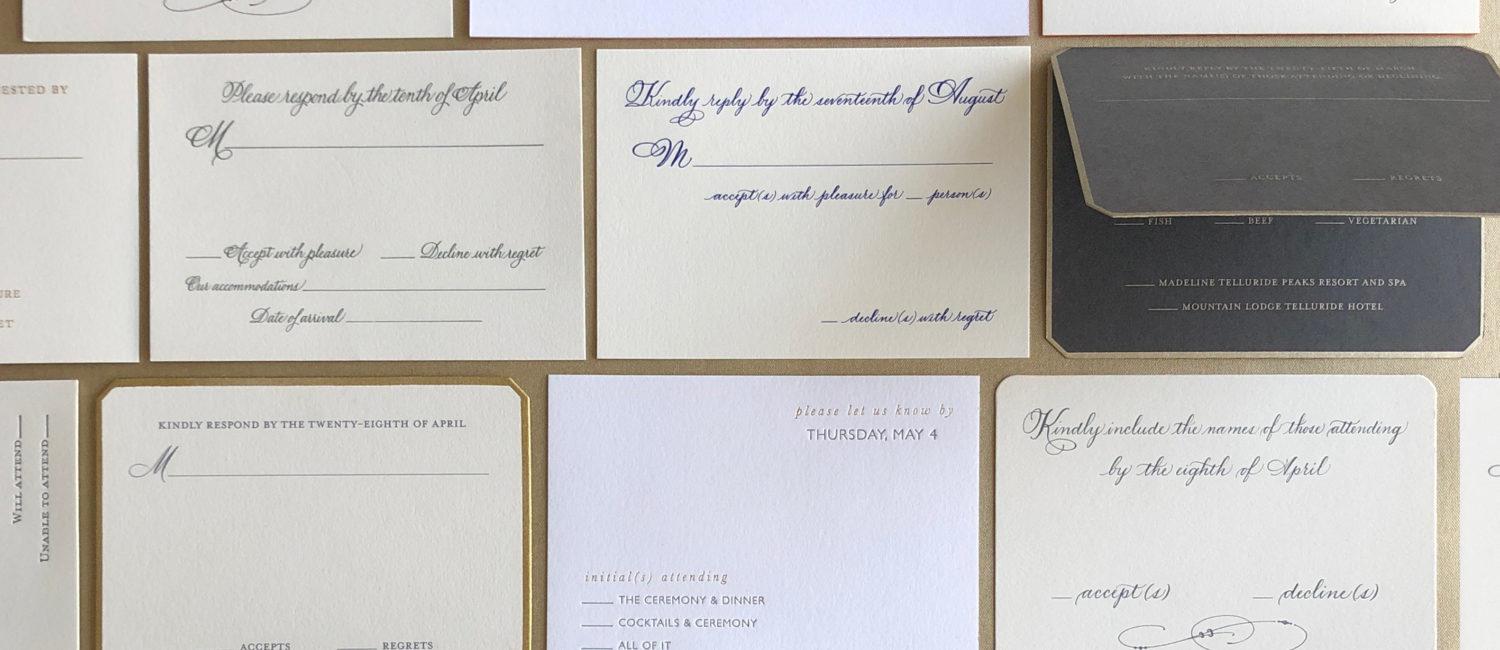 ESTED BY
URE
ET
Please respond by the tenth of April
M
Accept with pleasure Decline with regret
Our accommodations
Date of arrival
Kindly reply by the seventeenth of August
M
accept(s) with pleasure for person(s)
decline(s) with regret
KINDLY REPLY BY THE TWENTY-FIFTH OF MARCH
WITH THE NAME(S) OF THOSE ATTENDING OR DECLINING
ACCEPTS REGRETS
FISH BEEF VEGETARIAN
MADELINE TELLURIDE PEAKS RESORT AND SPA
MOUNTAIN LODGE TELLURIDE HOTEL
WILL ATTEND
UNABLE TO ATTEND
KINDLY RESPOND BY THE TWENTY-EIGHTH OF APRIL
M
ACCEPTS REGRETS
please let us know by
THURSDAY, MAY 4
initial(s) attending
THE CEREMONY & DINNER
COCKTAILS & CEREMONY
ALL OF IT
Kindly include the names of those attending
by the eighth of April
accept(s) decline(s)